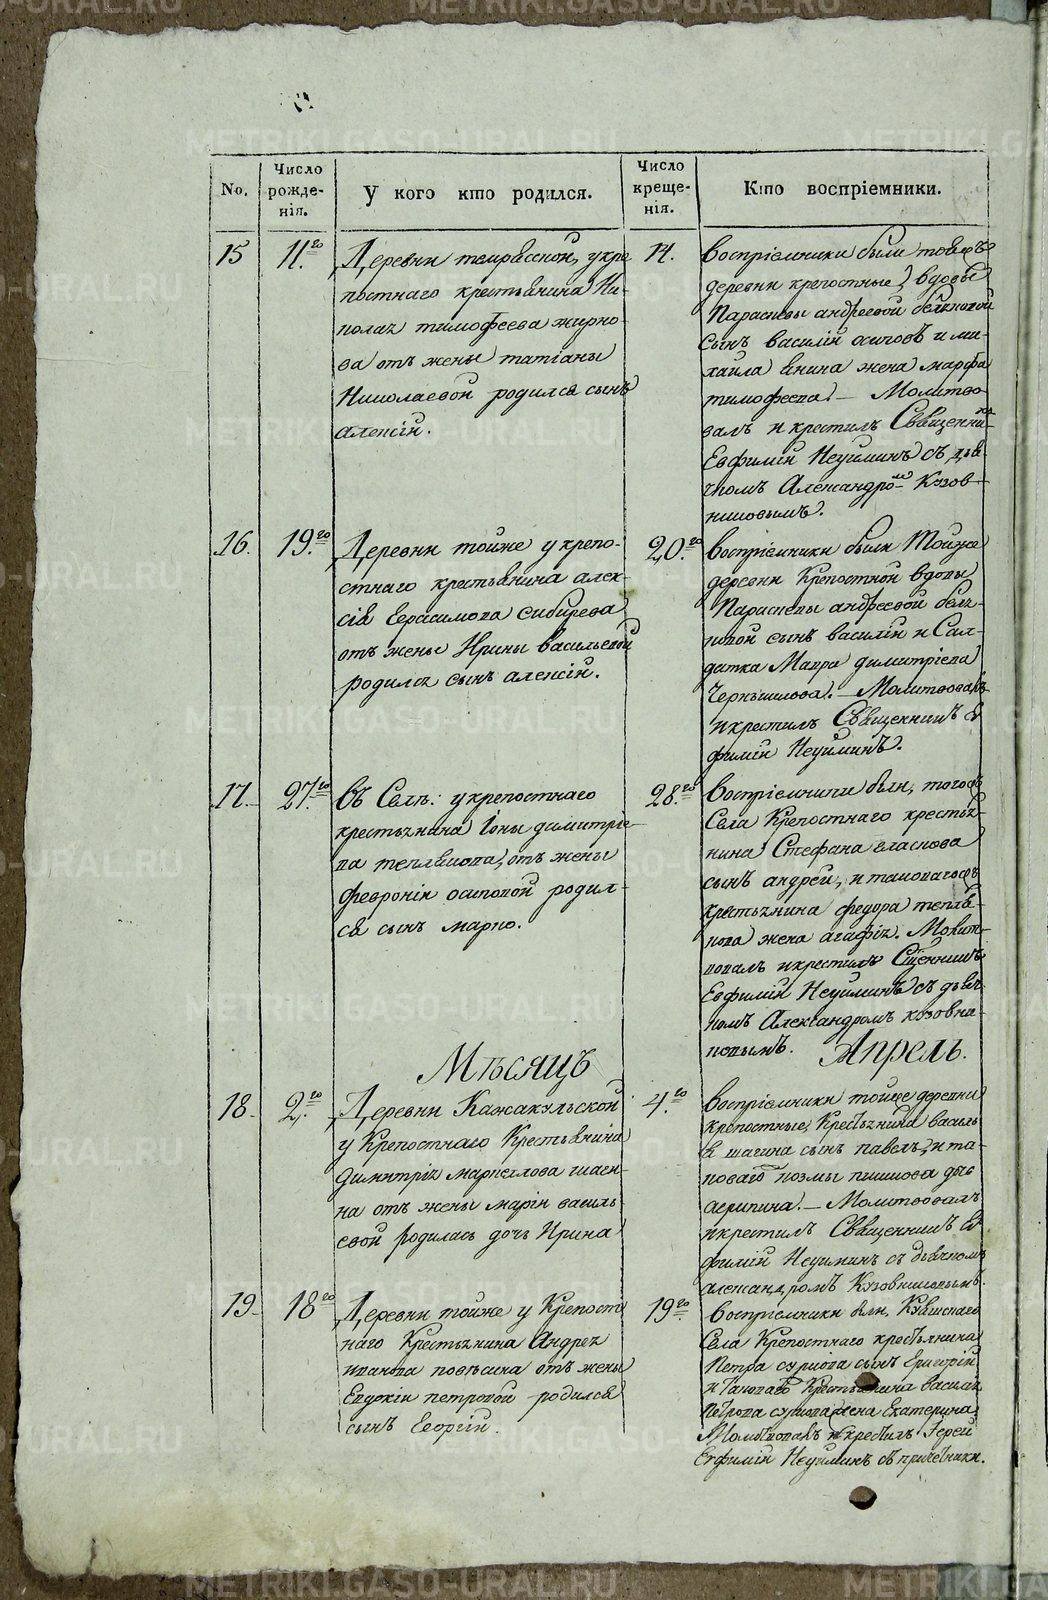 No.
Число рожде-нія.
У кого кто родился.
Число креще-нія.
Кто воспріемники.
15
11.го
Деревни укре
постнаго крестьянина Ни-
тимофеева жирно-
ва отъ жены татіаны
Николаевой родился сынъ
алексій.
14.
воспріемники были тояжъ
деревни крепостные, вдовы
Параскевы андреевой
сынъ василій и ми-
хаила жена марфа
тимофеева. — Молитво-
валъ и крестилъ Священни-
Евфимій Неуйминъ съ дья-
чкомъ Александро- Козов-
никовымъ.
16.
19.го
Деревни тойже у крепо-
стнаго крестьянина алек-
сія Герасимова сибирева
отъ жены Ирины васильевой
родился сынъ алексій.
20.го
воспріемники были Тойже
деревни Крепостной вдовы
Параскевы андреевой бель-
ковой сынъ василій и Сал-
датка Мавра димитріева
Чернышкова. — Молитвовалъ
и крестилъ Священникъ Ев
фимій Неуйминъ.
17.
27.го
въ Селе: у крепостнаго
крестьянина Іоны димитріе-
ва теплякова, отъ жены
февроніи осиповой родил-
ся сынъ марко.
28.го
воспріемники были, тогожъ
Села Крепостнаго крестья-
нина Стефана власкова
сынъ андрей, и таковагожъ
крестьянина федора тепля-
кова жена агафія. Молит-
вовалъ и крестилъ Сщенникъ
Евфимій Неуйминъ съ дьяч-
комъ Александромъ козовни-
ковымъ.
Мѣсяцъ Апрель.
18.
2.го
Деревни Кажакульской
у Крепостнаго Крестьянина
Димитрія маркелова шаги-
на отъ жены маріи василь-
евой родилась дочь Ирина
4.го
воспріемники тойже деревни
крепостные, Крестьянина василь
я шагина сынъ павелъ, и та-
коваго козмы
акилина. — Молитвовалъ
и крестилъ Священникъ Ев
фимій Неуйминъ съ дьячкомъ
александромъ Козовниковымъ.
19.
18.го
Деревни тойже у Крепост
наго Крестьянина Андрея
иванова отъ жены
Евдокіи петровой родился
сынъ Георгій.
19.го
воспріемники были,
Села Крепостнаго крестьянина
Петра сынъ Григорій
и Таковаго Крестьянина василія
Петрова жена Екатерина
Молитвовалъ и крестилъ Іерей
Евфимій Неуйминъ съ причетники.
METRIKI.GASO-URAL.RU